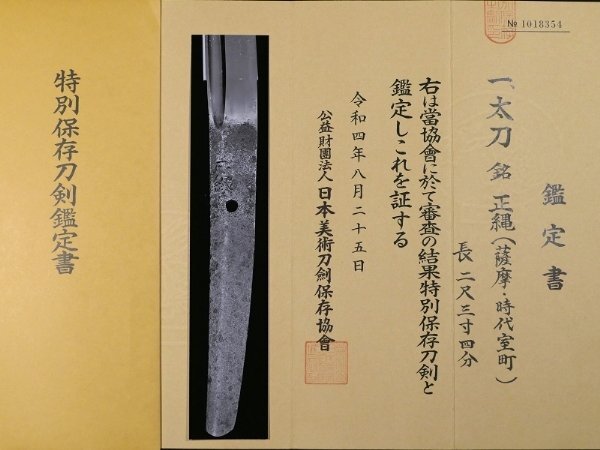 № 1018354
鑑定書
一、太刀 銘 正縄(薩摩・時代室町)
長 二尺三寸四分
右は當協會に於て審査の結果特別保存刀剣と
鑑定しこれを証する
令和四年八月二十五日
公益財團法人 日本美術刀劍保存協會
特別保存刀剣鑑定書